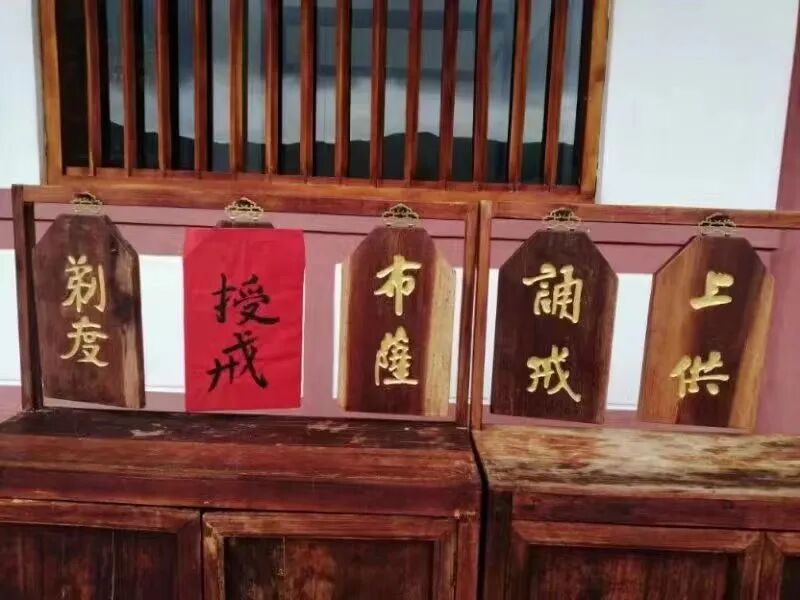 剃度
授戒
布薩
誦戒
上供